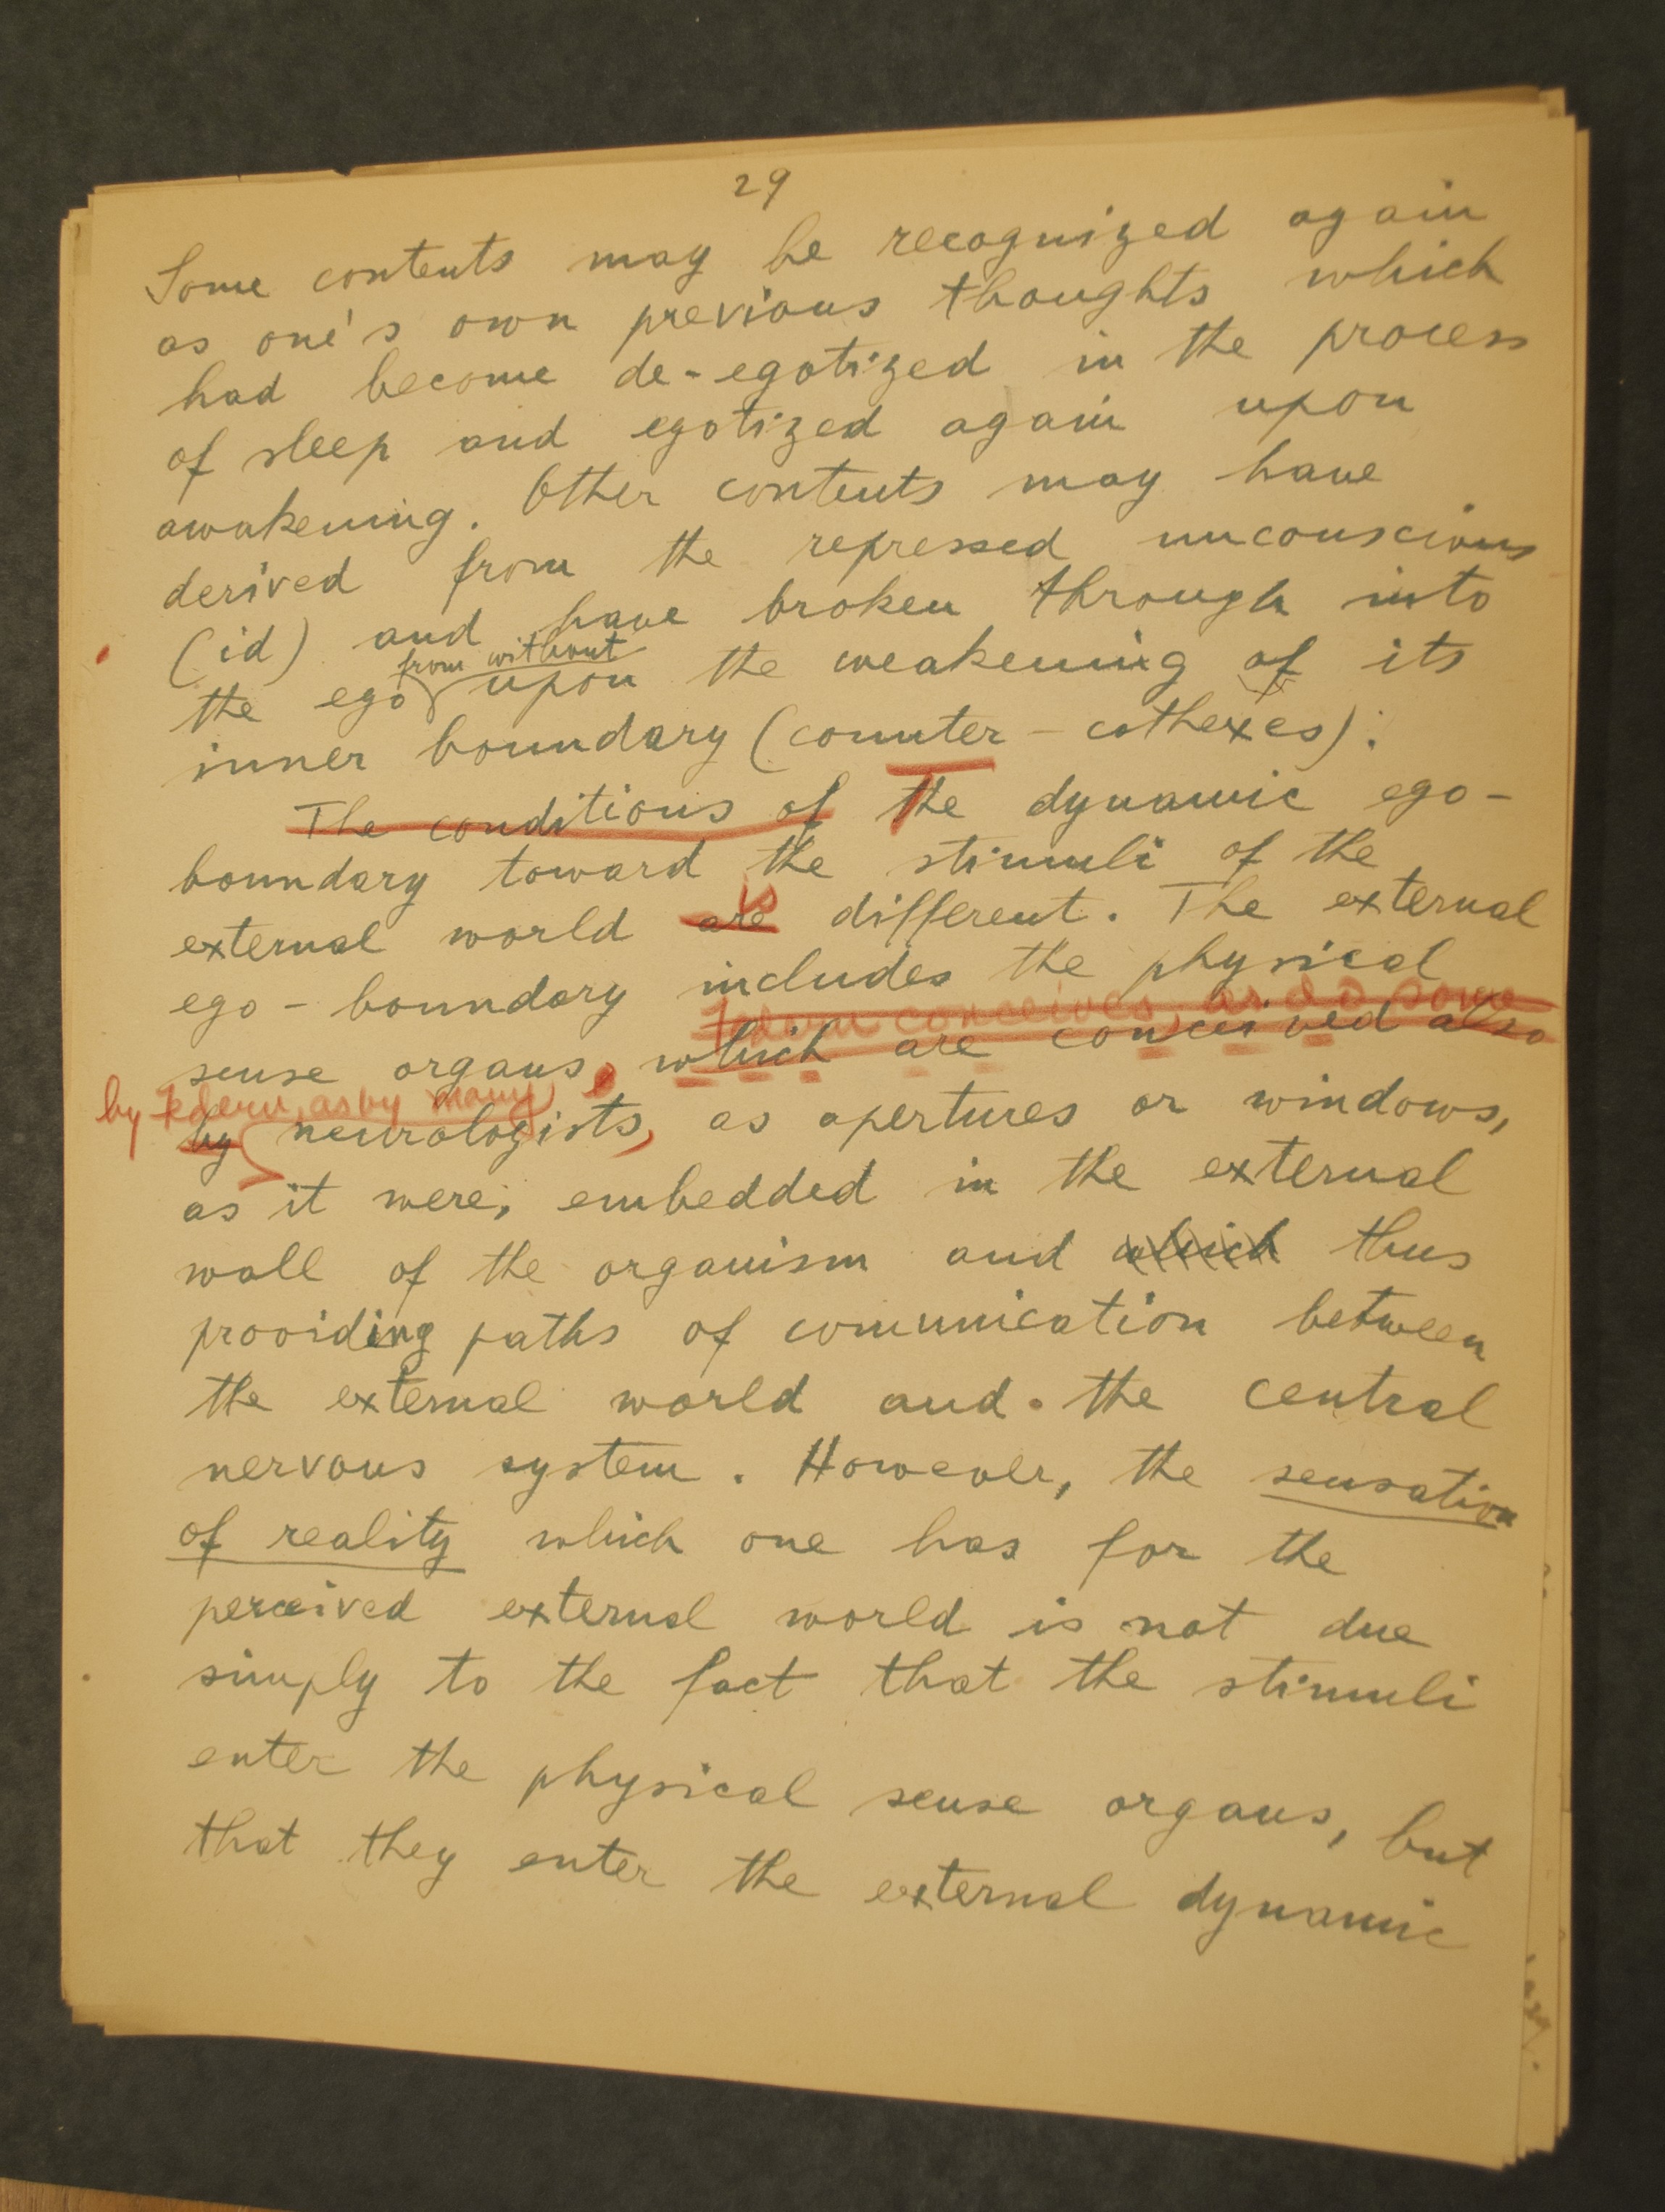 29
Some contents may be recognized again
as one's own previous thoughts which
had become de-egotized in the process
of sleep and egotized again upon
awakening. Other contents may have
derived from the repressed unconscious
(id) and have broken through into
from without
the ego upon the weakening of its
inner boundary (counter-cathexes).
The conditions of The dynamic ego-
boundary toward the stimuli of the
is
external world are different. The external
ego-boundary includes the physical
Federn conceives, as do some
sense organs, which are conceived also
by Federn, as by many
by neurologists, as apertures or windows,
as it were, embedded in the external
wall of the organism and which thus
providing paths of communication between
the external world and the central
nervous system. However, the sensation
of reality which one has for the
perceived external world is not due
simply to the fact that the stimuli
enter the physical sense organs, but
that they enter the external dynamic